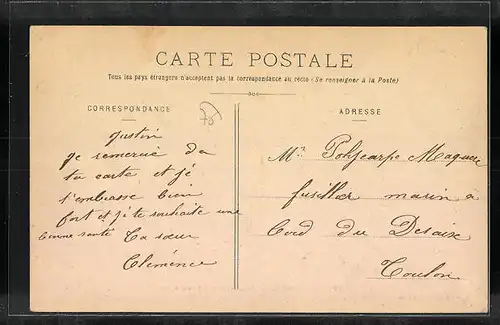 CARTE POSTALE
Tous les pays étrangers n'acceptent pas la correspondance au recto (Se renseigner à la Poste)
CORRESPONDANCE
ADRESSE
Justin
Je remercie da
ta carte et je
t'embrasse bien
fort et je te souhaite une
bonne santé Ta sœur
Clémence
Mr Polycarpe
fusillier marin a
bord du Desaix
Toulon